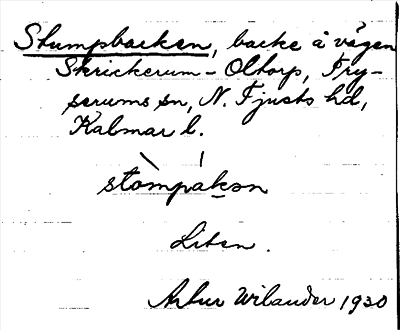 Stumpbacken, backe å vägen
Skrickerum - Oltorp, Fry-
serums sn, N. Tjusts hd,
Kalmar l.
stòmpákən
Liten.
Artur Wilander 1930